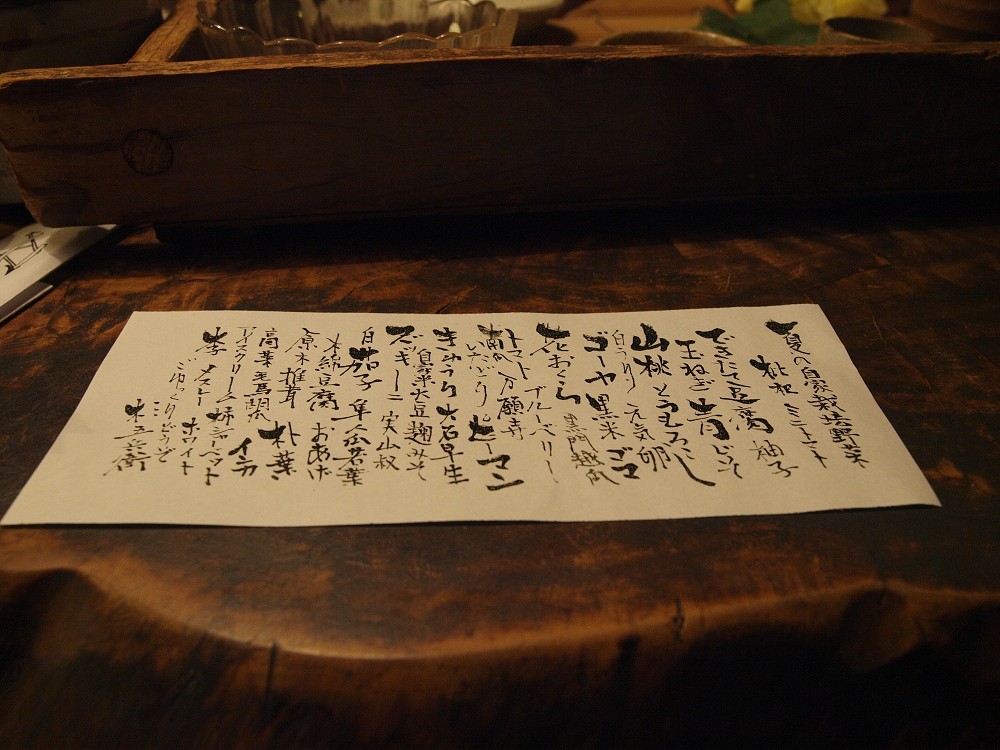 夏の自家栽培野菜
枇杷 ミニトマト
できたて豆腐 柚子
玉ねぎ 青じそ
山桃 とうもろこし
白うり 元気卵
ゴーヤ 黒米 ゴマ
花おくら 黒門越瓜
ブルーベリー
トマト 万願寺
いたどり ピーマン
きゅうり 大石早生
自家米大豆麹みそ
ズッキーニ 実山椒
白茄子 隼人瓜若葉
木綿豆腐 おあげ
原木椎茸 朴葉
イチカ
アイスクリーム 柿シャーベット
李 メスレー ホワイト
ごゆっくりどうぞ